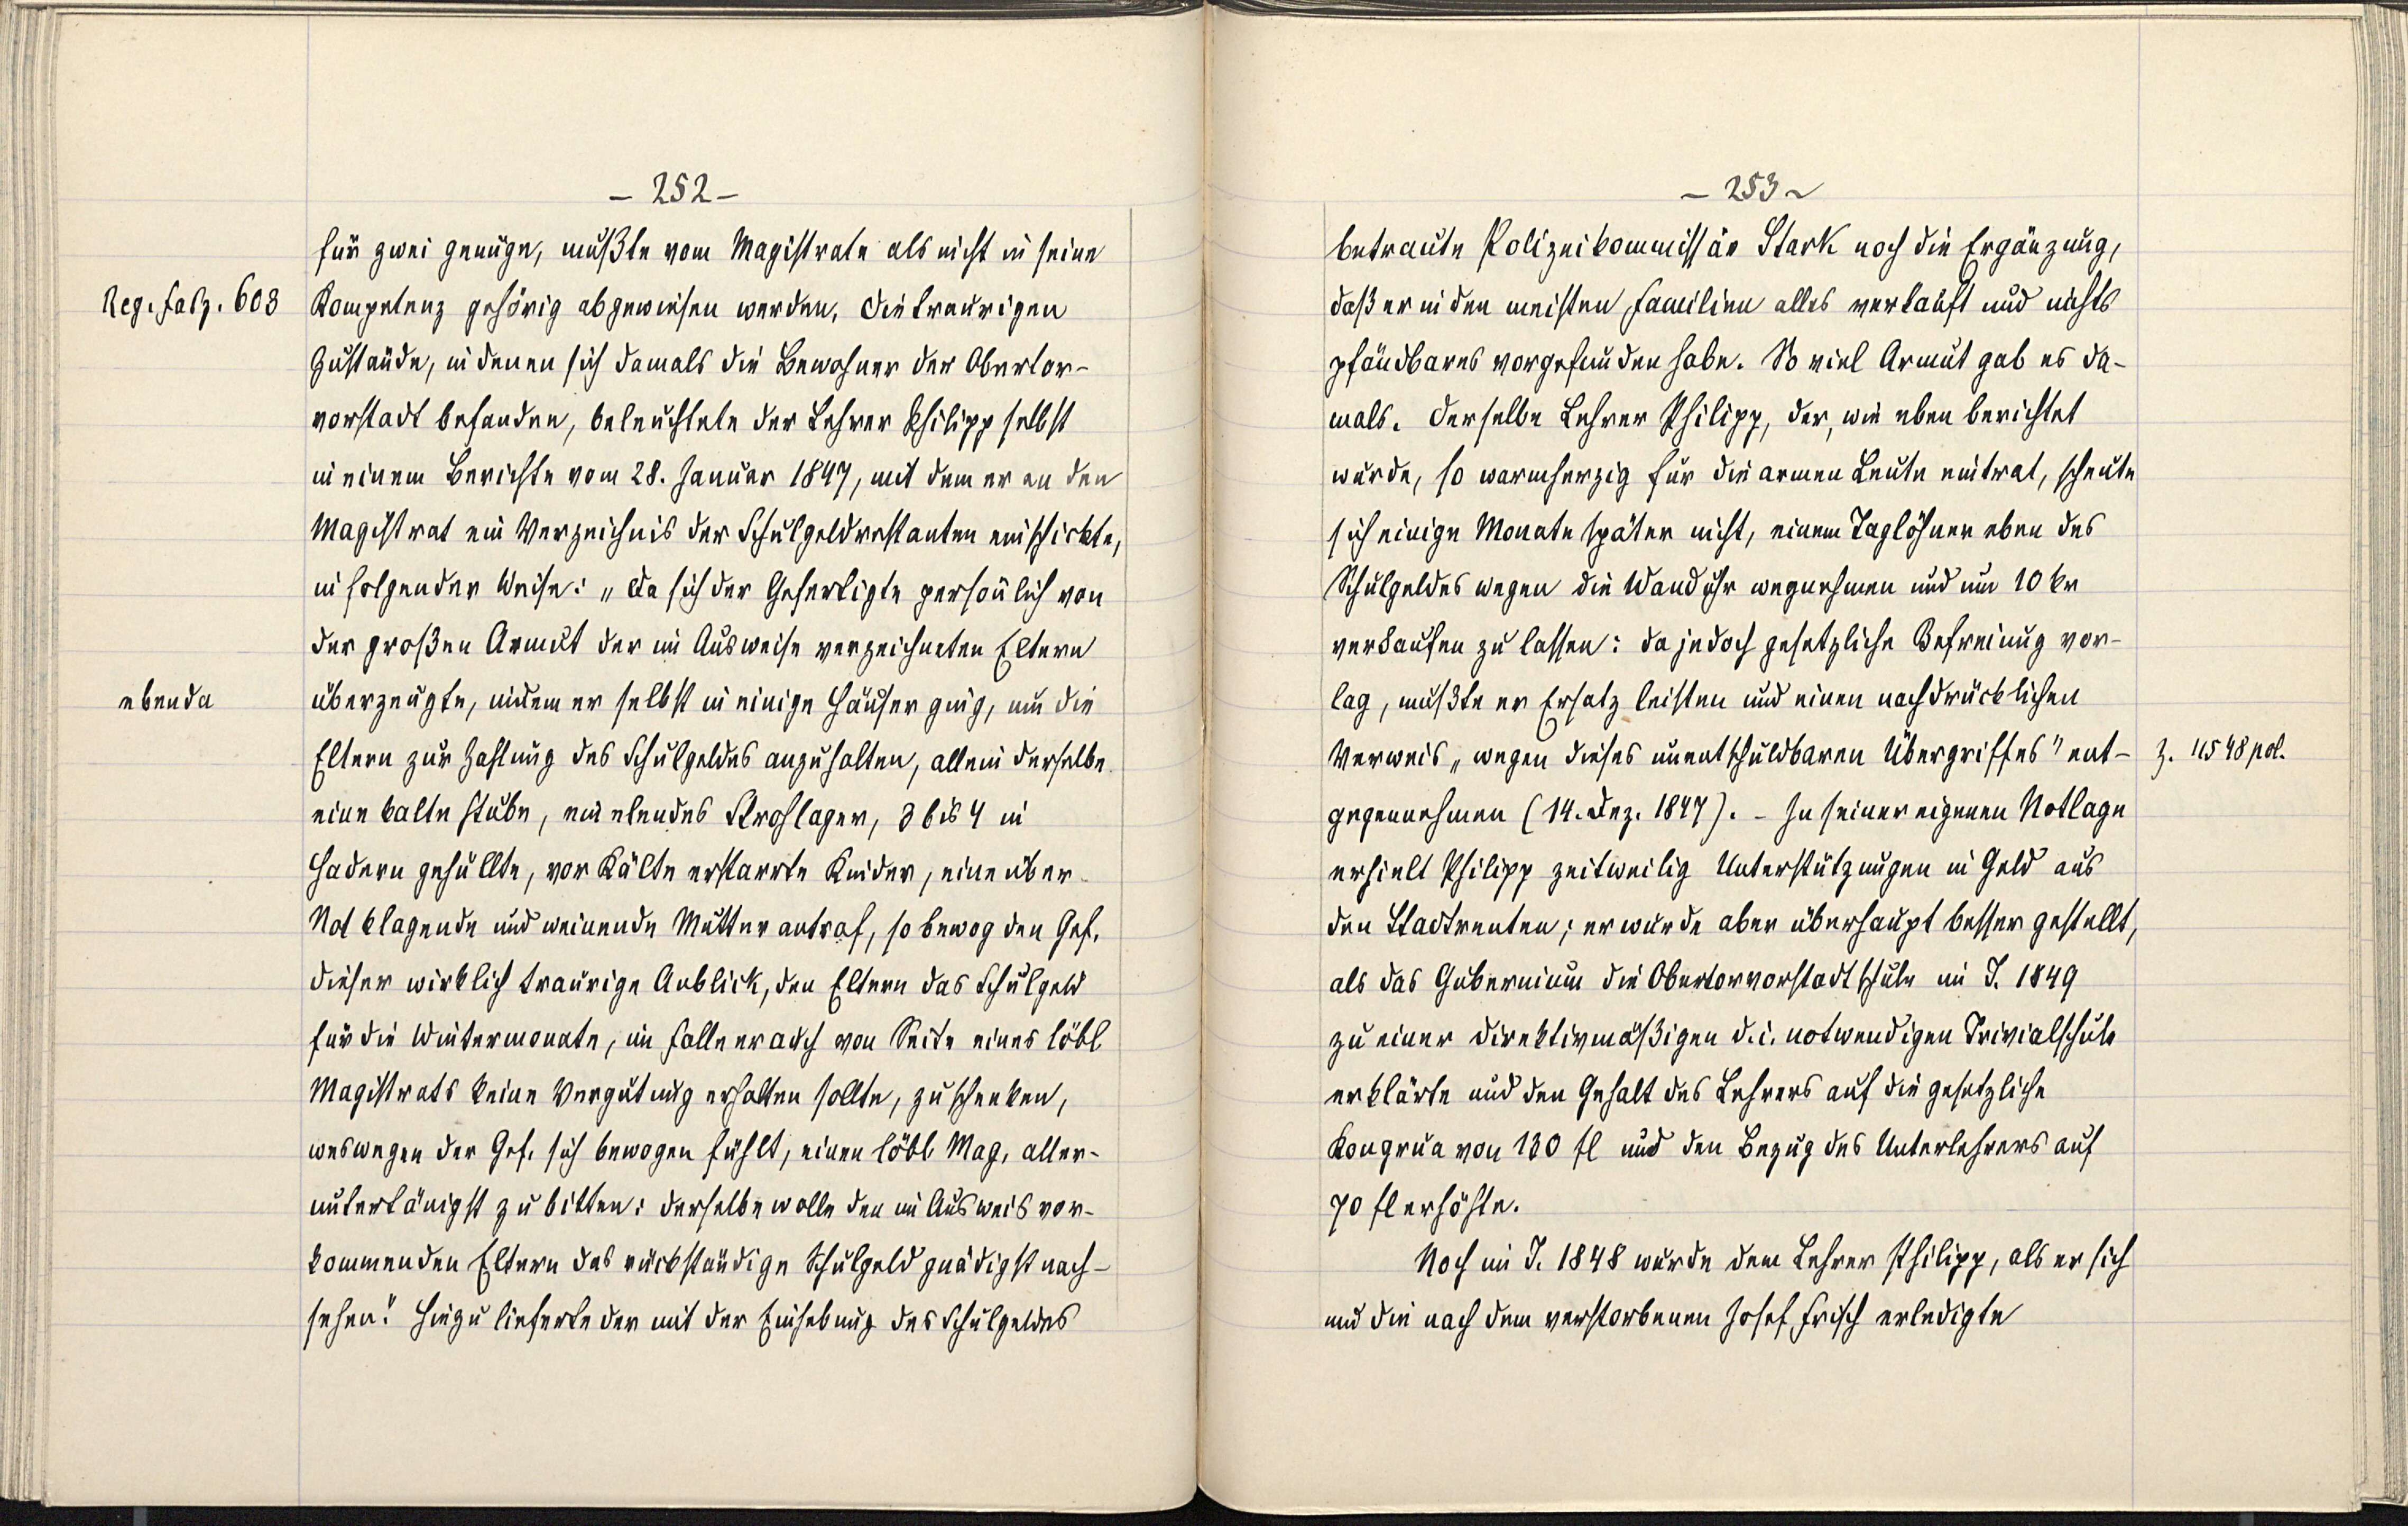 - 252 -
für zwei genüge, mußte vom Magistrate als nicht in seine
Reg. Fasz. 603
Kompetenz gehörig abgewiesen werden. Die traurigen
Zustände, in denen sich damals die Bewohner der Obertor-
vorstadt befanden, beleuchtete der Lehrer Philipp selbst
in einem Berichte vom 28. Januar 1847, mit dem er an den
Magistrat ein Verzeichnis der Schulgeldrestanten einschickte,
in folgender Weise: „Da sich der Gefertigte persönlich von
der großen Armut der im Ausweise verzeichneten Eltern
ebenda
überzeugte, indem er selbst in einige Häuser ging, um die
Eltern zur Zahlung des Schulgeldes anzuhalten, allein derselbe
eine kalte Stube, ein elendes Strohlager, 3 bis 4 in
Hadern gehüllte, vor Kälte erstarrte Kinder, eine über
Not klagende und weinende Mutter antraf, so bewog den Gef.
dieser wirklich traurige Anblick, den Eltern das Schulgeld
für die Wintermonate, im Falle er auch von Seite eines löbl
Magistrats keine Vergütung erhalten sollte, zu schenken,
weswegen der Gef. sich bewogen fühlt, einen löbl. Mag. aller-
untertänigst zu bitten: derselbe wolle den im Ausweis vor-
kommenden Eltern das rückständige Schulgeld gnädigst nach-
sehen." Hiezu lieferte der mit der Einhebung des Schulgeldes
- 253 -
betraute Polizeikommissär Stark noch die Ergänzung,
daß er in den meisten Familien alles verkauft und nichts
pfändbares vorgefunden habe. So viel Armut gab es da-
mals. Derselbe Lehrer Philipp, der, wie eben berichtet
wurde, so warmherzig für die armen Leute eintrat, scheute
sich einige Monate später nicht, einem Taglöhner eben des
Schulgeldes wegen die Wanduhr wegnehmen und um 10 kr
verkaufen zu lassen: da jedoch gesetzliche Befreiung vor-
lag, mußte er Ersatz leisten und einen nachdrücklichen
Verweis „wegen dieses unentschuldbaren Übergriffes" ent-
Z. 11548 pol.
gegennehmen (14. Dez. 1847). - In seiner eigenen Notlage
erhielt Philipp zeitweilig Unterstützungen in Geld aus
den Stadtrenten; er wurde aber überhaupt besser gestellt,
als das Gubernium die Obertorvorstadtschule im J. 1849
zu einer direktivmäßigen d. i. notwendigen Trivialschule
erklärte und den Gehalt des Lehrers auf die gesetzliche
Kongrua von 130 fl und den Bezug des Unterlehrers auf
70 fl erhöhte.
Noch im J. 1848 wurde dem Lehrer Philipp, als er sich
um die nach dem verstorbenen Josef Frisch erledigte